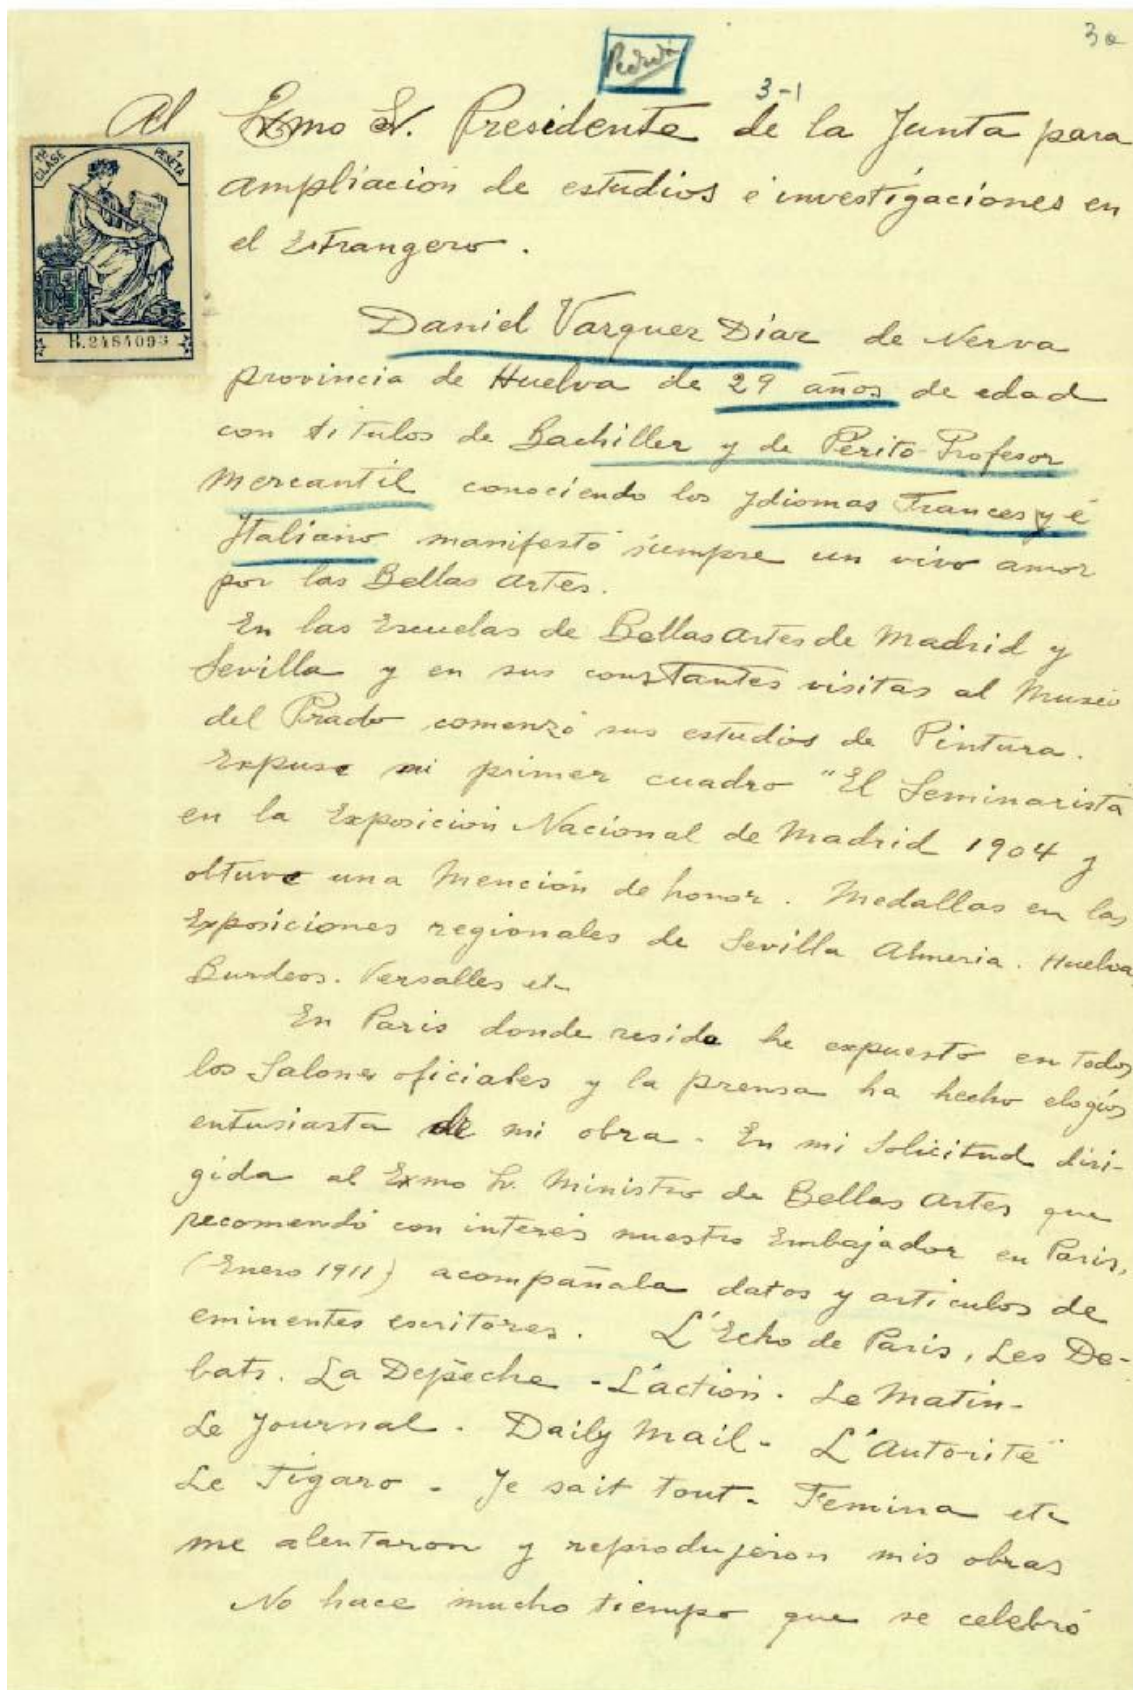 30
3-1
Al Exmo Sr. Presidente de la Junta para
ampliacion de estudios é investigaciones en
el Estrangero.
11ª CLASE 1 PESETA
B.2484093
Daniel Vazquez Diaz de Nerva
provincia de Huelva de 29 años de edad
con titulos de Bachiller y de Perito-Profesor
Mercantil conociendo los Idiomas Frances y é
Italiano manifestó siempre un vivo amor
por las Bellas Artes.
En las Escuelas de Bellas Artes de Madrid y
Sevilla y en sus constantes visitas al Museo
del Prado comenzó sus estudios de Pintura.
Expuse mi primer cuadro "El Seminarista
en la Exposicion Nacional de Madrid 1904 y
obtuve una Mención de honor. Medallas en las
Exposiciones regionales de Sevilla Almeria. Huelva
Burdeos. Versalles etc
En Paris donde resido he expuesto en todos
los Salones oficiales y la prensa ha hecho elogios
entusiasta de mi obra. En mi Solicitud diri-
gida al Exmo Sr. Ministro de Bellas Artes que
recomendó con interés nuestro Embajador en Paris,
(Enero 1911) acompañaba datos y articulos de
eminentes escritores. L'Echo de Paris, Les De-
bats. La Depeche - L'action. Le Matin-
Le Journal. Daily Mail- L'Autorité
Le Figaro - Je sait tout- Femina etc
me alentaron y reprodujeron mis obras
No hace mucho tiempo que se celebró